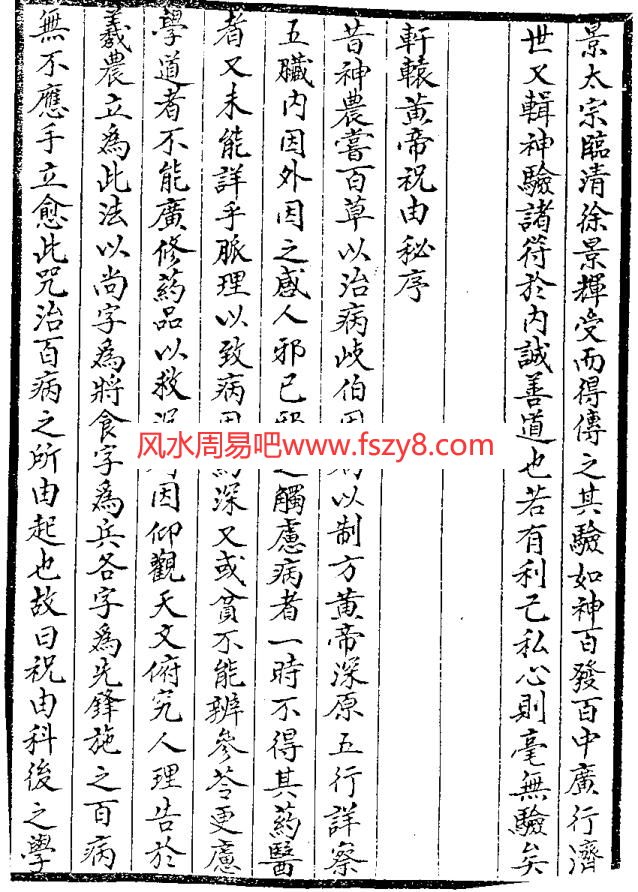 景太宗臨清徐景輝受而得傳之其驗如神百發百中廣行濟
世又輯神驗諸符於內誠善道也若有利己私心則毫無驗矣
軒轅黃帝祝由秘序
昔神農嘗百草以治病岐伯因病以制方黃帝深原五行詳察
五臟內因外因之感人邪已 之觸慮病者一時不得其药醫
者又未能詳乎脈理以致病因 深又或貧不能辨參苓更慮
學道者不能廣修药品以救 因仰觀天文俯究人理告於
羲農立為此法以尚字為將食字為兵各字為先鋒施之百病
無不應手立愈此咒治百病之所由起也故曰祝由科後之學
风水周易吧www.fszy8.com